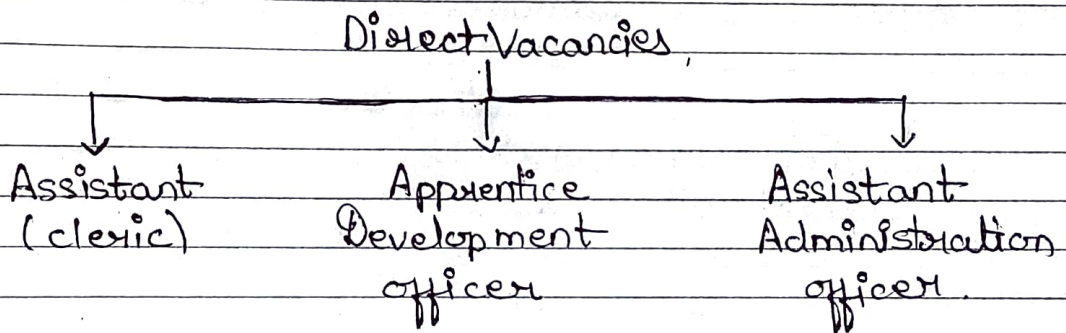 Direct Vacancies,
Assistant
(cleric)
Apprentice
Development
officer
Assistant
Administration
officer.